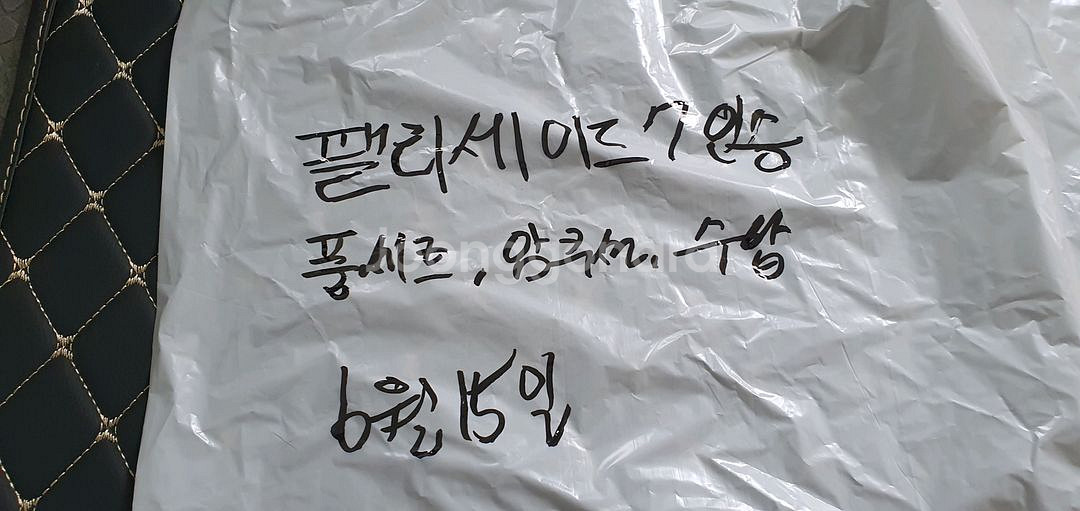 팰리세이드 7인승
풀시트, 암쿠션, 수납
6월 15일